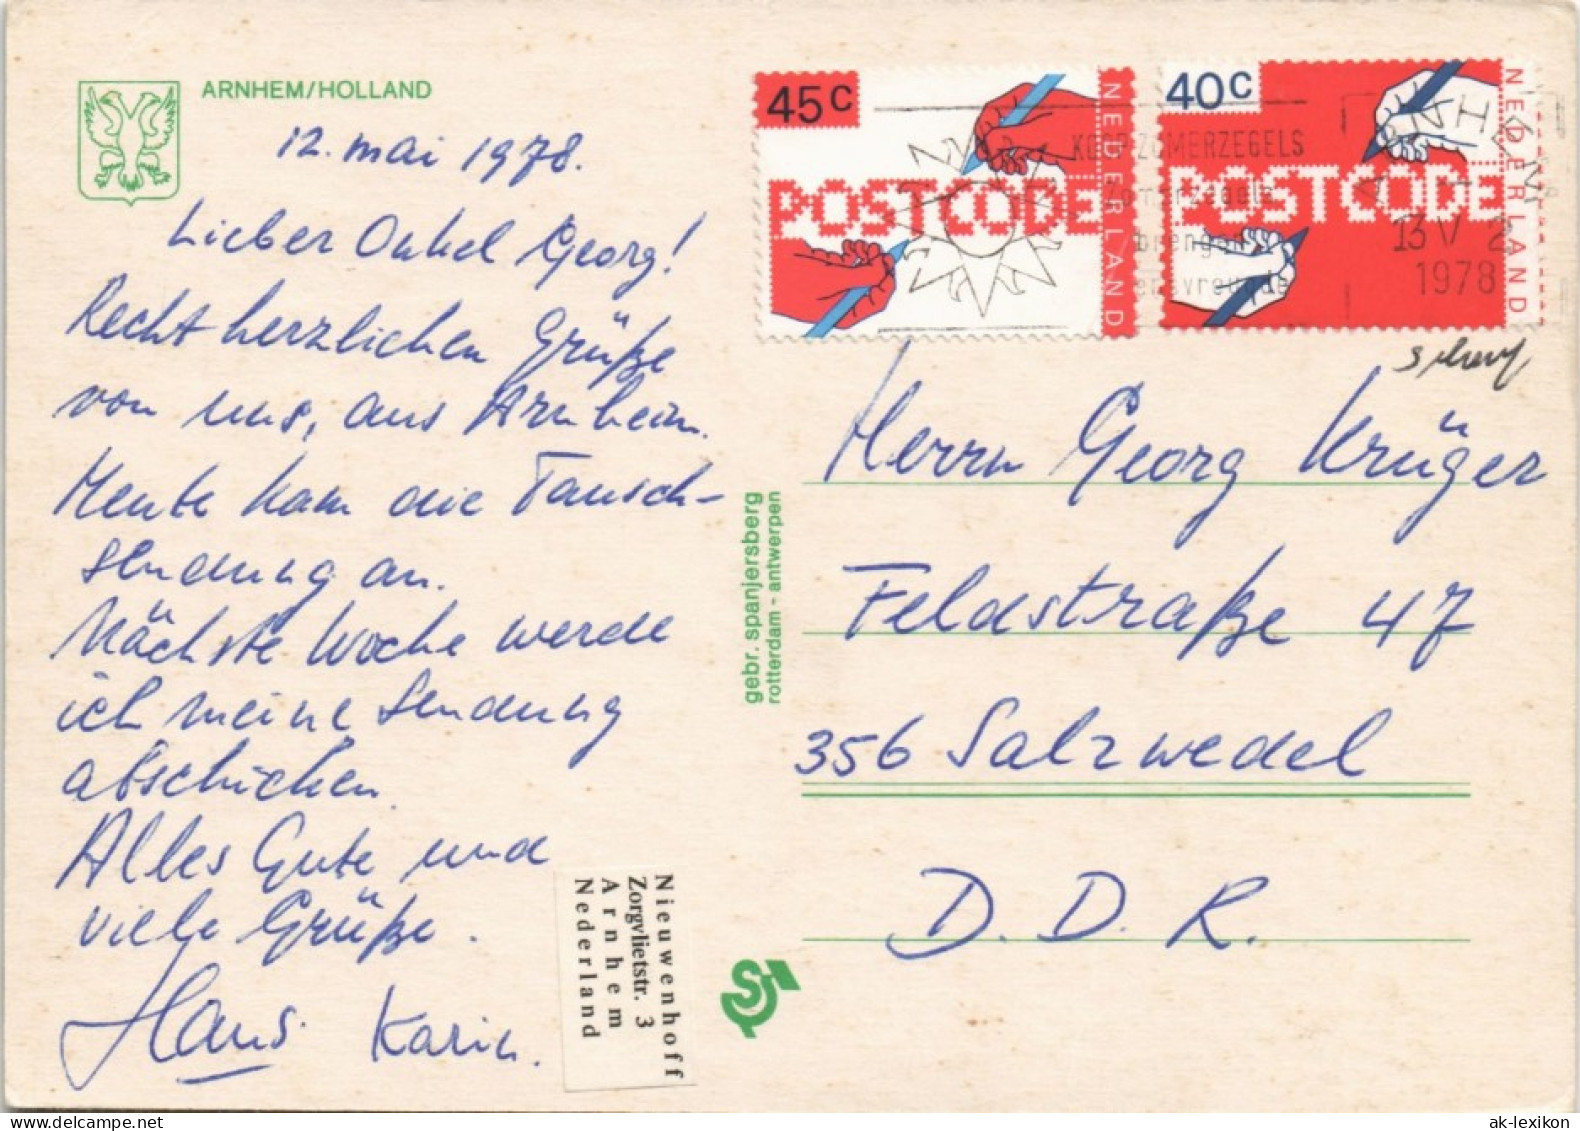 ARNHEM/HOLLAND
12. mai 1978.
Lieber Onkel Georg!
Recht herzlichen Grüße
von uns, aus Arnheim.
Heute kam die Tausch-
sendung an.
Nächste Woche werde
ich meine Sendung
abschicken.
Alles Gute und
viele Grüße.
Hans. Karin.
Nieuwenhoff
Zorgvlietstr. 3
Arnhem
Nederland
gebr. spanjersberg
rotterdam - antwerpen
45c
POSTCODE
NEDERLAND
40c
POSTCODE
NEDERLAND
KOOP ZOMERZEGELS
Zomerzegels
brengen
levensvreugde
ARNHEM
13 V 2
1978
Herrn Georg Krüger
Feldstraße 47
356 Salzwedel
D. D. R.
ak-lexikon.com